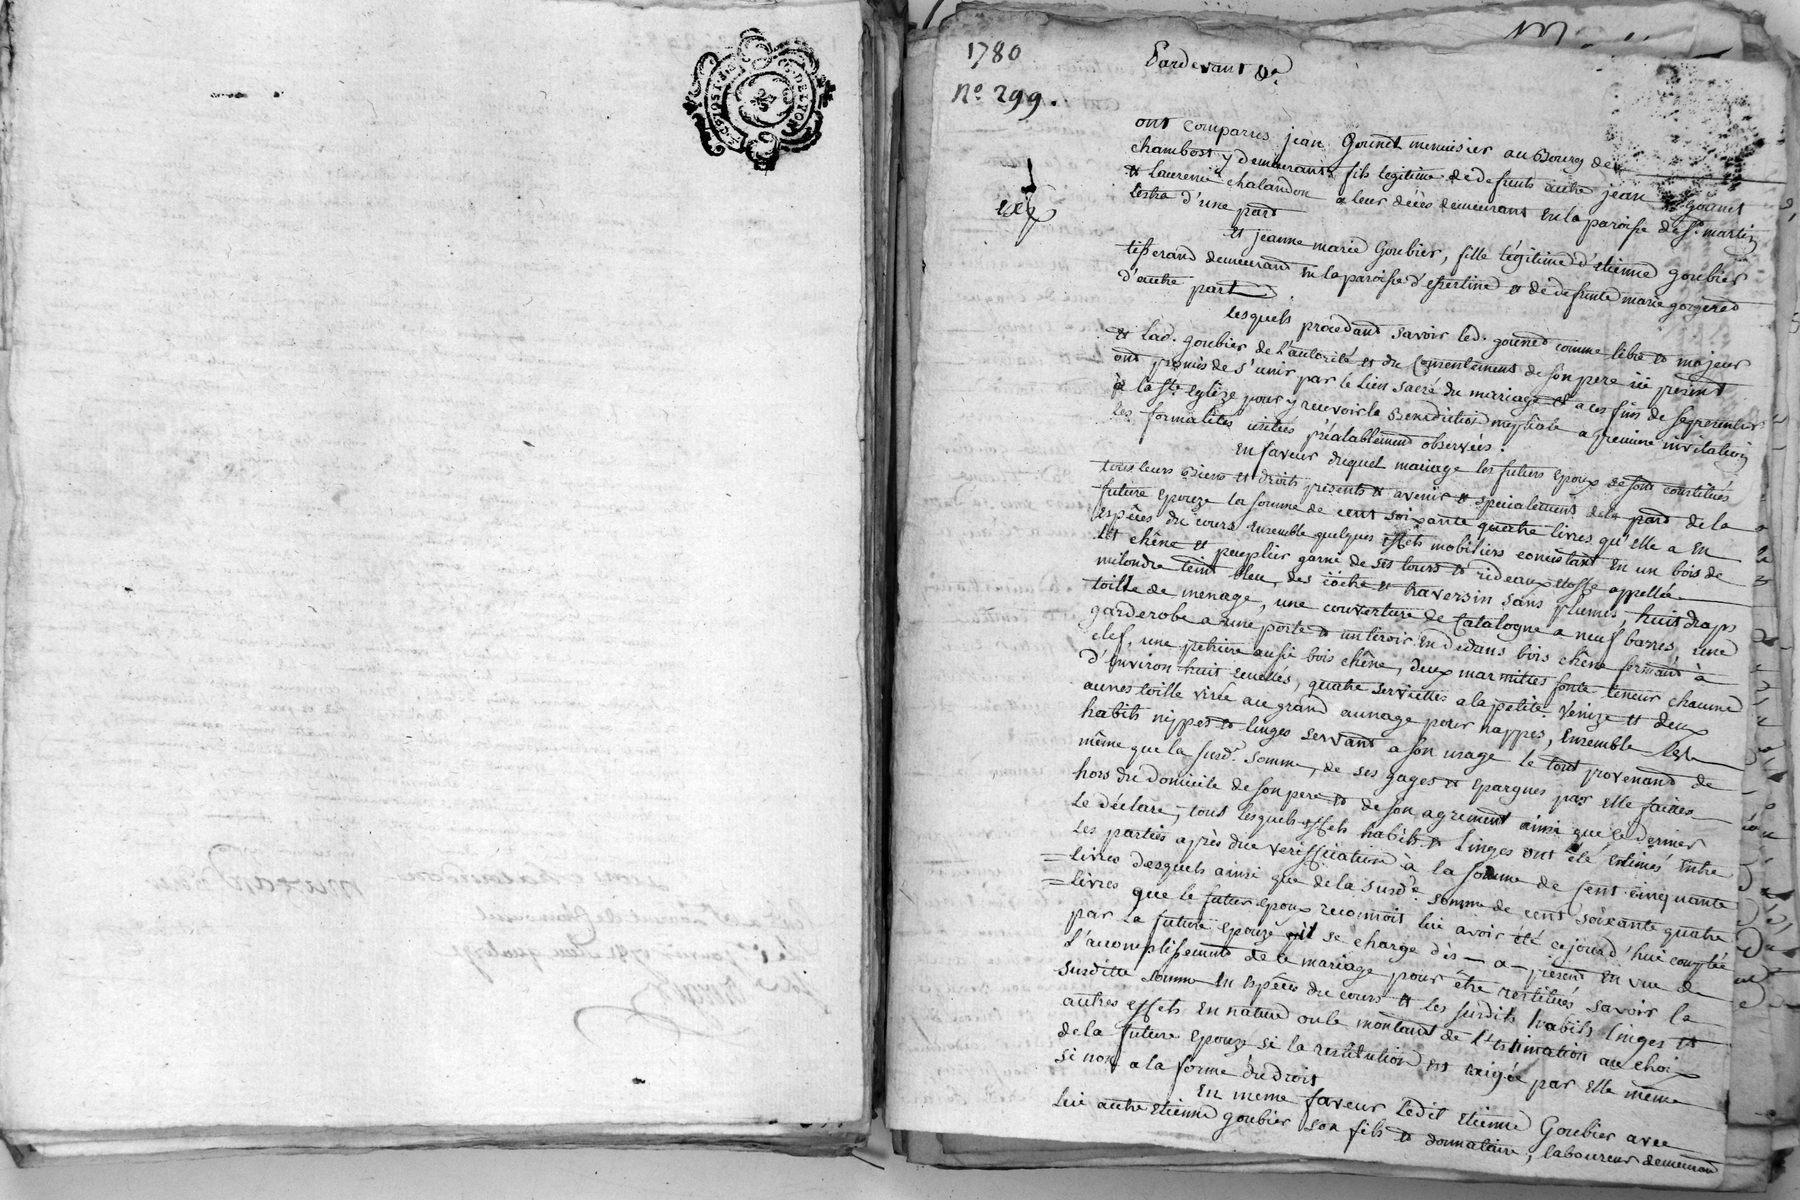 GNALITE DE LYON
1780
N.º 299.
Pardevant &.ª
ont comparus jean Gounet menuisier au Bourg de
chambost y demeurant, fils legitime de defunts autre jean Gounet
et Laurence chalandon a leur décès demeurant en la paroisse de S.t martin
lestra d'une part
Et jeanne marie Goubier, fille légitime d'Etienne Goubier
tisserand demeurant en la paroisse d'essertine et de defunte marie gorgeret
d'autre part
Lesquels procedant savoir led. gounet comme libre et majeur
et lad. goubier de l'autorité et du Consentement de son pere ici présent
ont promis de s'unir par le lien sacré du mariage et a ces fins de se présenter
à la S.te Eglize pour y recevoir la Benediction nuptiale a premiere invitation
les formalités usitées préalablement observées.
En faveur duquel mariage les futurs Epoux se sont constitués
tous leurs Biens et droits présents et avenir et specialement de la part de la
future Epouze la somme de cent soixante quatre livres qu'elle a en
Espèces du cours Ensemble quelques Effets mobiliers consistant en un bois de
lit chêne et peuplier garni de ses tours et rideaux etoffe appellée
milondre teint bleu, des coëtre et traversin sans plumes, huit draps
toille de menage, une couverture de Catalogne a neuf barres, une
garderobe a une porte et un tiroir en dedans bois chêne fermant à
clef, une petriere aussi bois chêne, deux marmittes fonte teneur chacune
d'environ huit Ecuelles, quatre serviettes a la petite Venize et deux
aunes toille virée au grand aunage pour nappes, Ensemble les
habits nippes et linges servant a son usage le tout provenant de
même que la susd.e somme, de ses gages et Epargnes par Elle faites
hors du Domicile de son pere et de son agrement ainsi que ce dernier
le déclare, tous lesquels Effets habits et linges ont été Estimés Entre
les parties après due vérification à la somme de Cent cinquante
livres desquels ainsi que de la susd.e somme de cent soixante quatre
livres que le futur Epoux reconnoit lui avoir été cejourd'hui comptée
par la future Epouze il se charge dès-a-présent en vue de
l'accomplissement de ce mariage pour être restitués savoir la
susditte somme en Espèces du cours et les susdits habits linges et
autres effets en nature ou le montant de l'Estimation au choix
de la future Epouze si la restitution est exigée par Elle même
si non a la forme du droit
En meme faveur ledit Etienne Goubier avec
lui autre Etienne goubier son fils et donnataire, laboureur demeurant